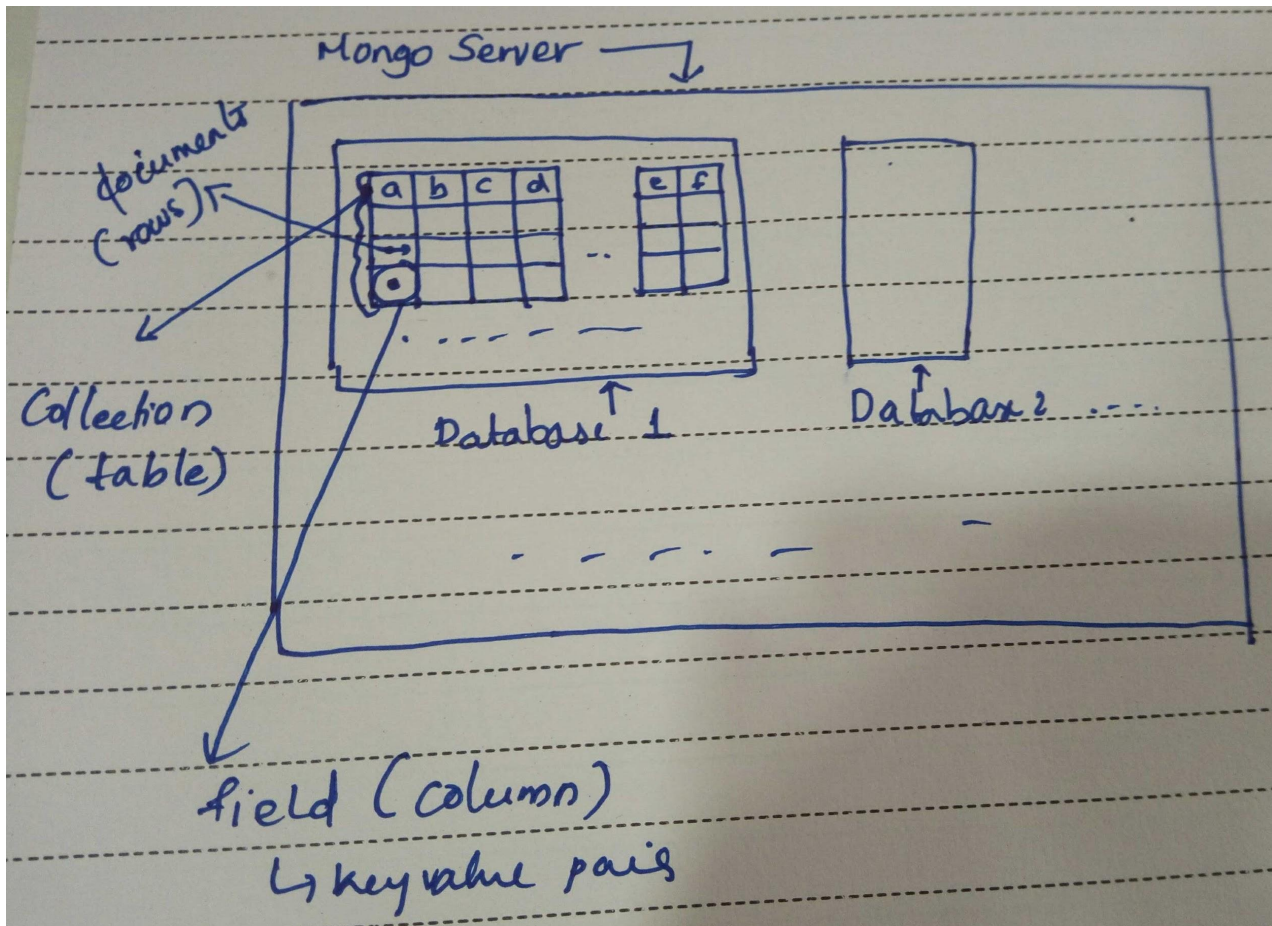 Mongo Server
documents
(rows)
a b c d
e f
Collection
(table)
Database 1
Database 2
field (column)
↳ key value pairs